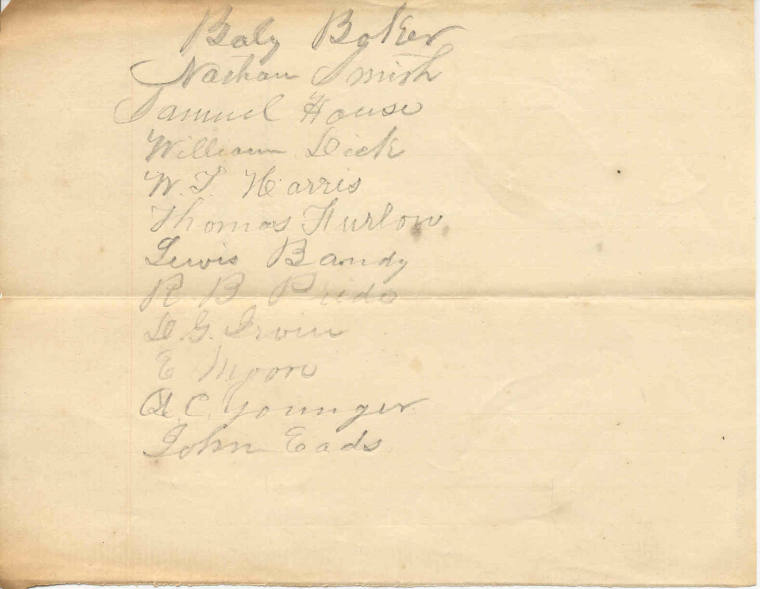 Baly Baker
Nathan Smith
Samuel House
William Dick
W. T. Harris
Thomas Furlow
Lewis Bandy
R B Pride
D. G. Irvin
E Moon
C. Younger
John Eads